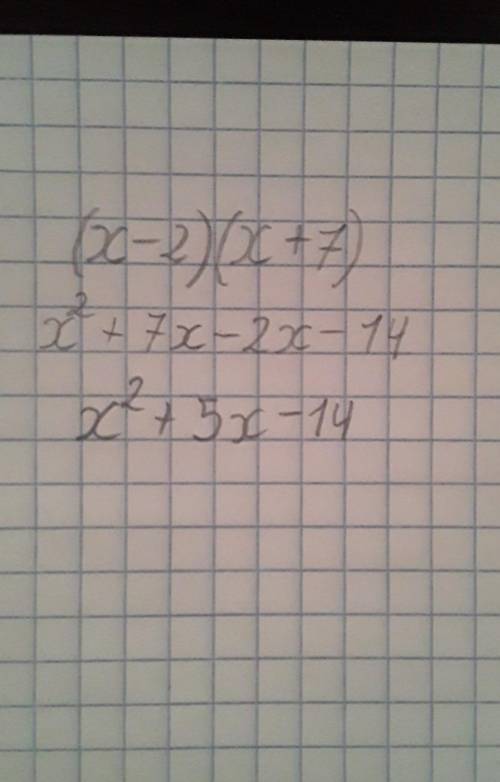 (x-2)(x+7)
x²+7x-2x-14
x²+5x-14